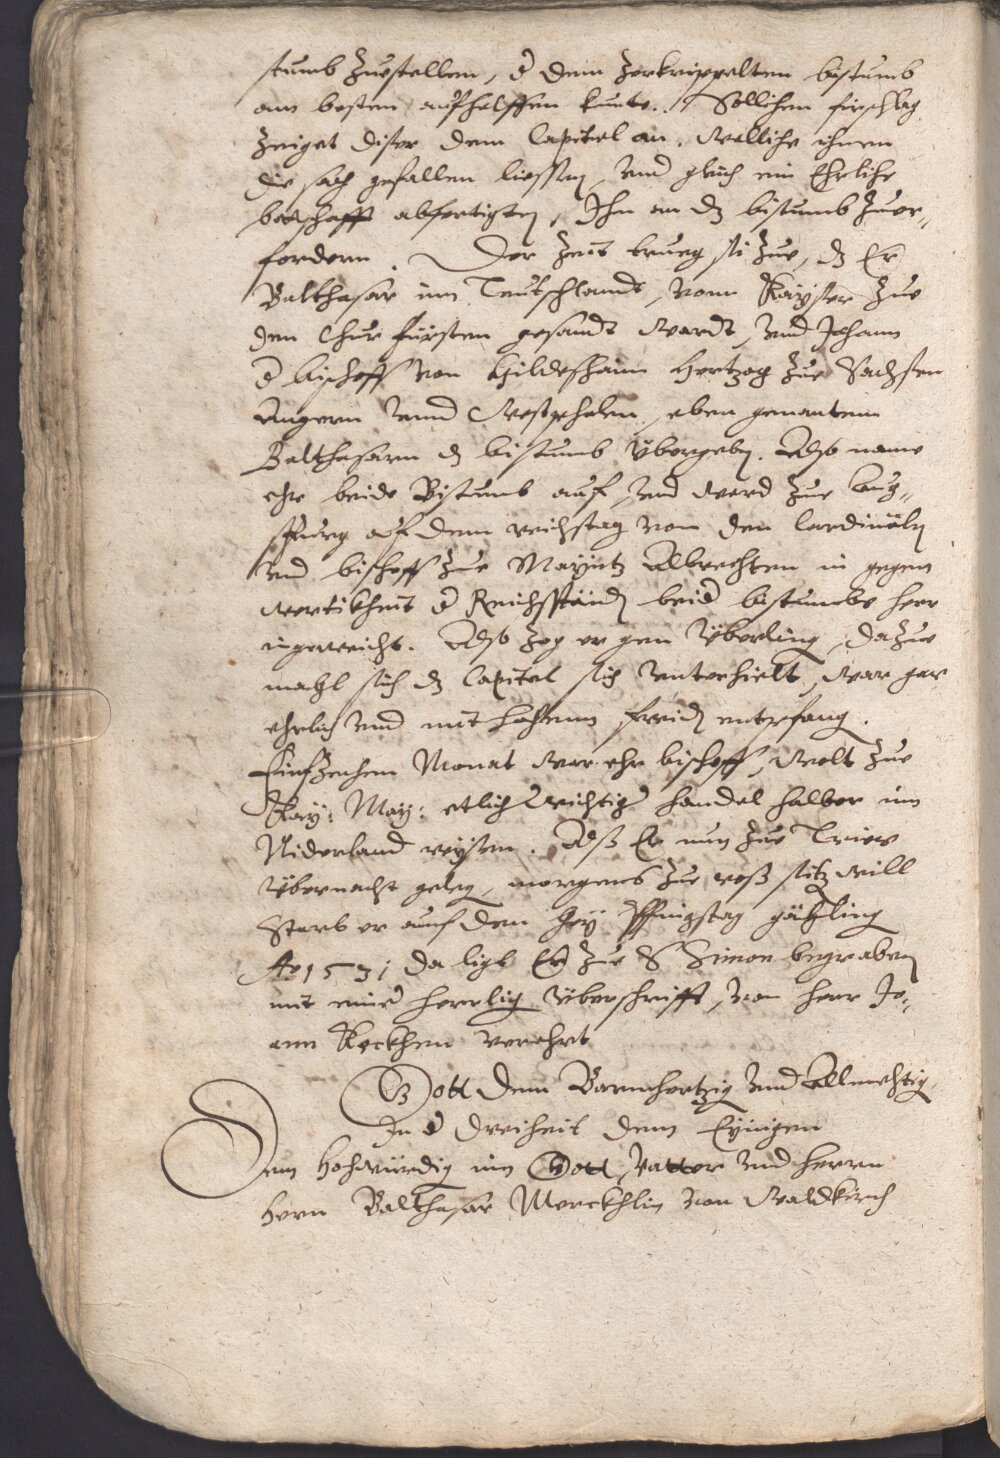 stumb Zuestellen, d dem zerkrippelten bistumb
am besten aufhelffen kunte. Sollichen fürschlag
Zeiget diser dem Capitel an. Welliche ihnen
die sach gefallen liessen, und gleich ein Ehrliche
botschafft abfertigten, Ihn an dz bistumb zuer„
fordern. Der Zeit trueg sich zue, dz Er
Balthasar im Teutschlandt, vom Kayser zue
den Churfürsten gesandt wardt, und Johann
d bischoff von Hildeshaim Hertzog Zue Sachssen
Angern unnd Westphalen, eben genantem
Balthasarn dz bistumb übergeben. Also name
ehr beide Bistumb auf, und ward zue Aug„
spurg auf dem reichstag von den Cardinäln
und bischoff zue Mayntz Albrechten in gegen
wertikheit d Reichsständ beid bistumbs herr
ingeweicht. Also zog er gen Überling, dazue
mahl sich dz Capitel sich unterhielt, war gar
ehrlich und mit hohem freid entpfang.
Fünfzehen Monat war ehr bischoff, wolt zue
Kay: May: etlich wichtig handel halber im
Niderland reysen. Alß Er nun zue Trier
übernacht geleg, morgens zue roß sitz will
Starb er auf den Pfingstag gähling
Ao 1531 da ligt Er zue S Simon begraben
mit einer herrlig Überschrifft, von herr Jo„
ann verehrt
Gott dem Barmhertzig und Allmechtig
In d dreiheit dem Eynigen
Dem Hochwürdig im Gott Vatter und herrn
Hern Balthasar Merckhlin von Waldkirch